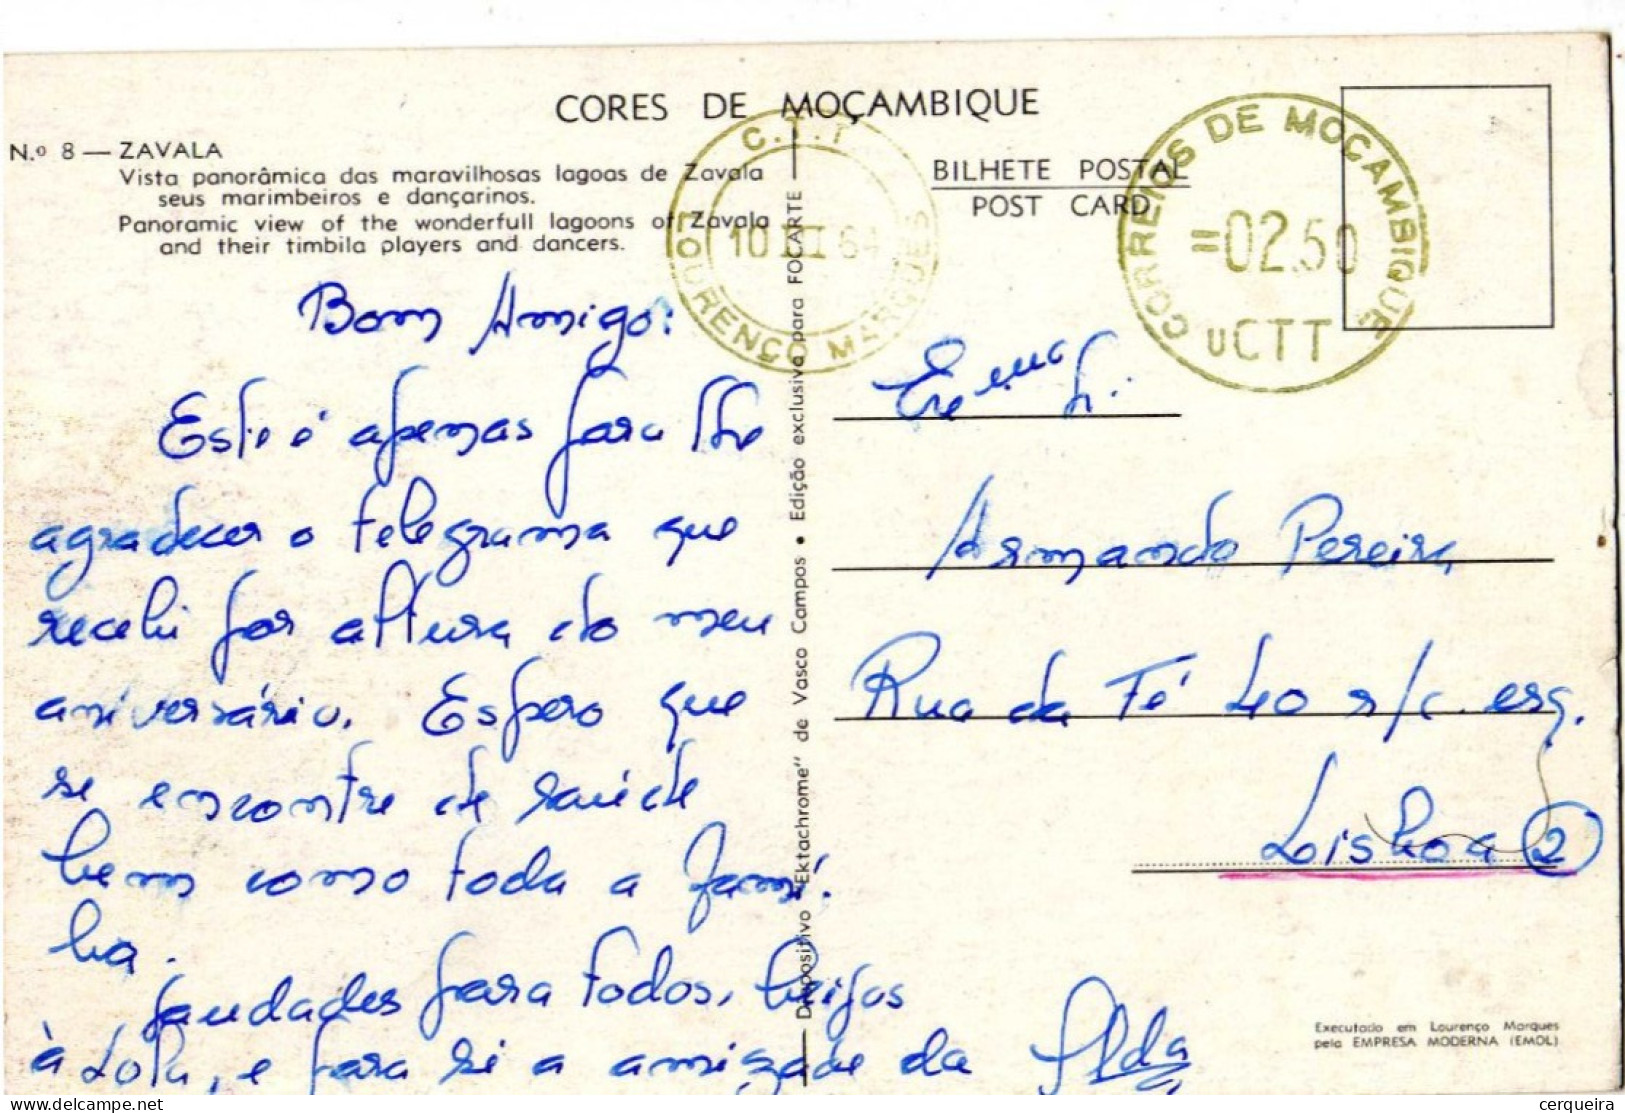 CORES DE MOÇAMBIQUE
N.º 8 — ZAVALA
Vista panorâmica das maravilhosas lagoas de Zavala
seus marimbeiros e dançarinos.
Panoramic view of the wonderfull lagoons of Zavala
and their timbila players and dancers.
BILHETE POSTAL
POST CARD
C.T.T
LOURENÇO MARQUES
10 III 64
CORREIOS DE MOÇAMBIQUE
=02.50
uCTT
Bom Amigo:
Este é apenas para lhe
agradecer o telegrama que
recebi por altura do meu
aniversário. Espero que
se encontre de saúde
bem como toda a famí-
lia.
Saudades para todos, beijos
à Lola, e para si a amizade da Alda
Dispositivo "Ektachrome" de Vasco Campos • Edição exclusiva para FOCARTE
Exc.mo Sr.
Armando Pereira
Rua da Fé 40 r/c. esq.
Lisboa (2)
Executado em Lourenço Marques
pela EMPRESA MODERNA (EMOL)
www.delcampe.net
cerqueira